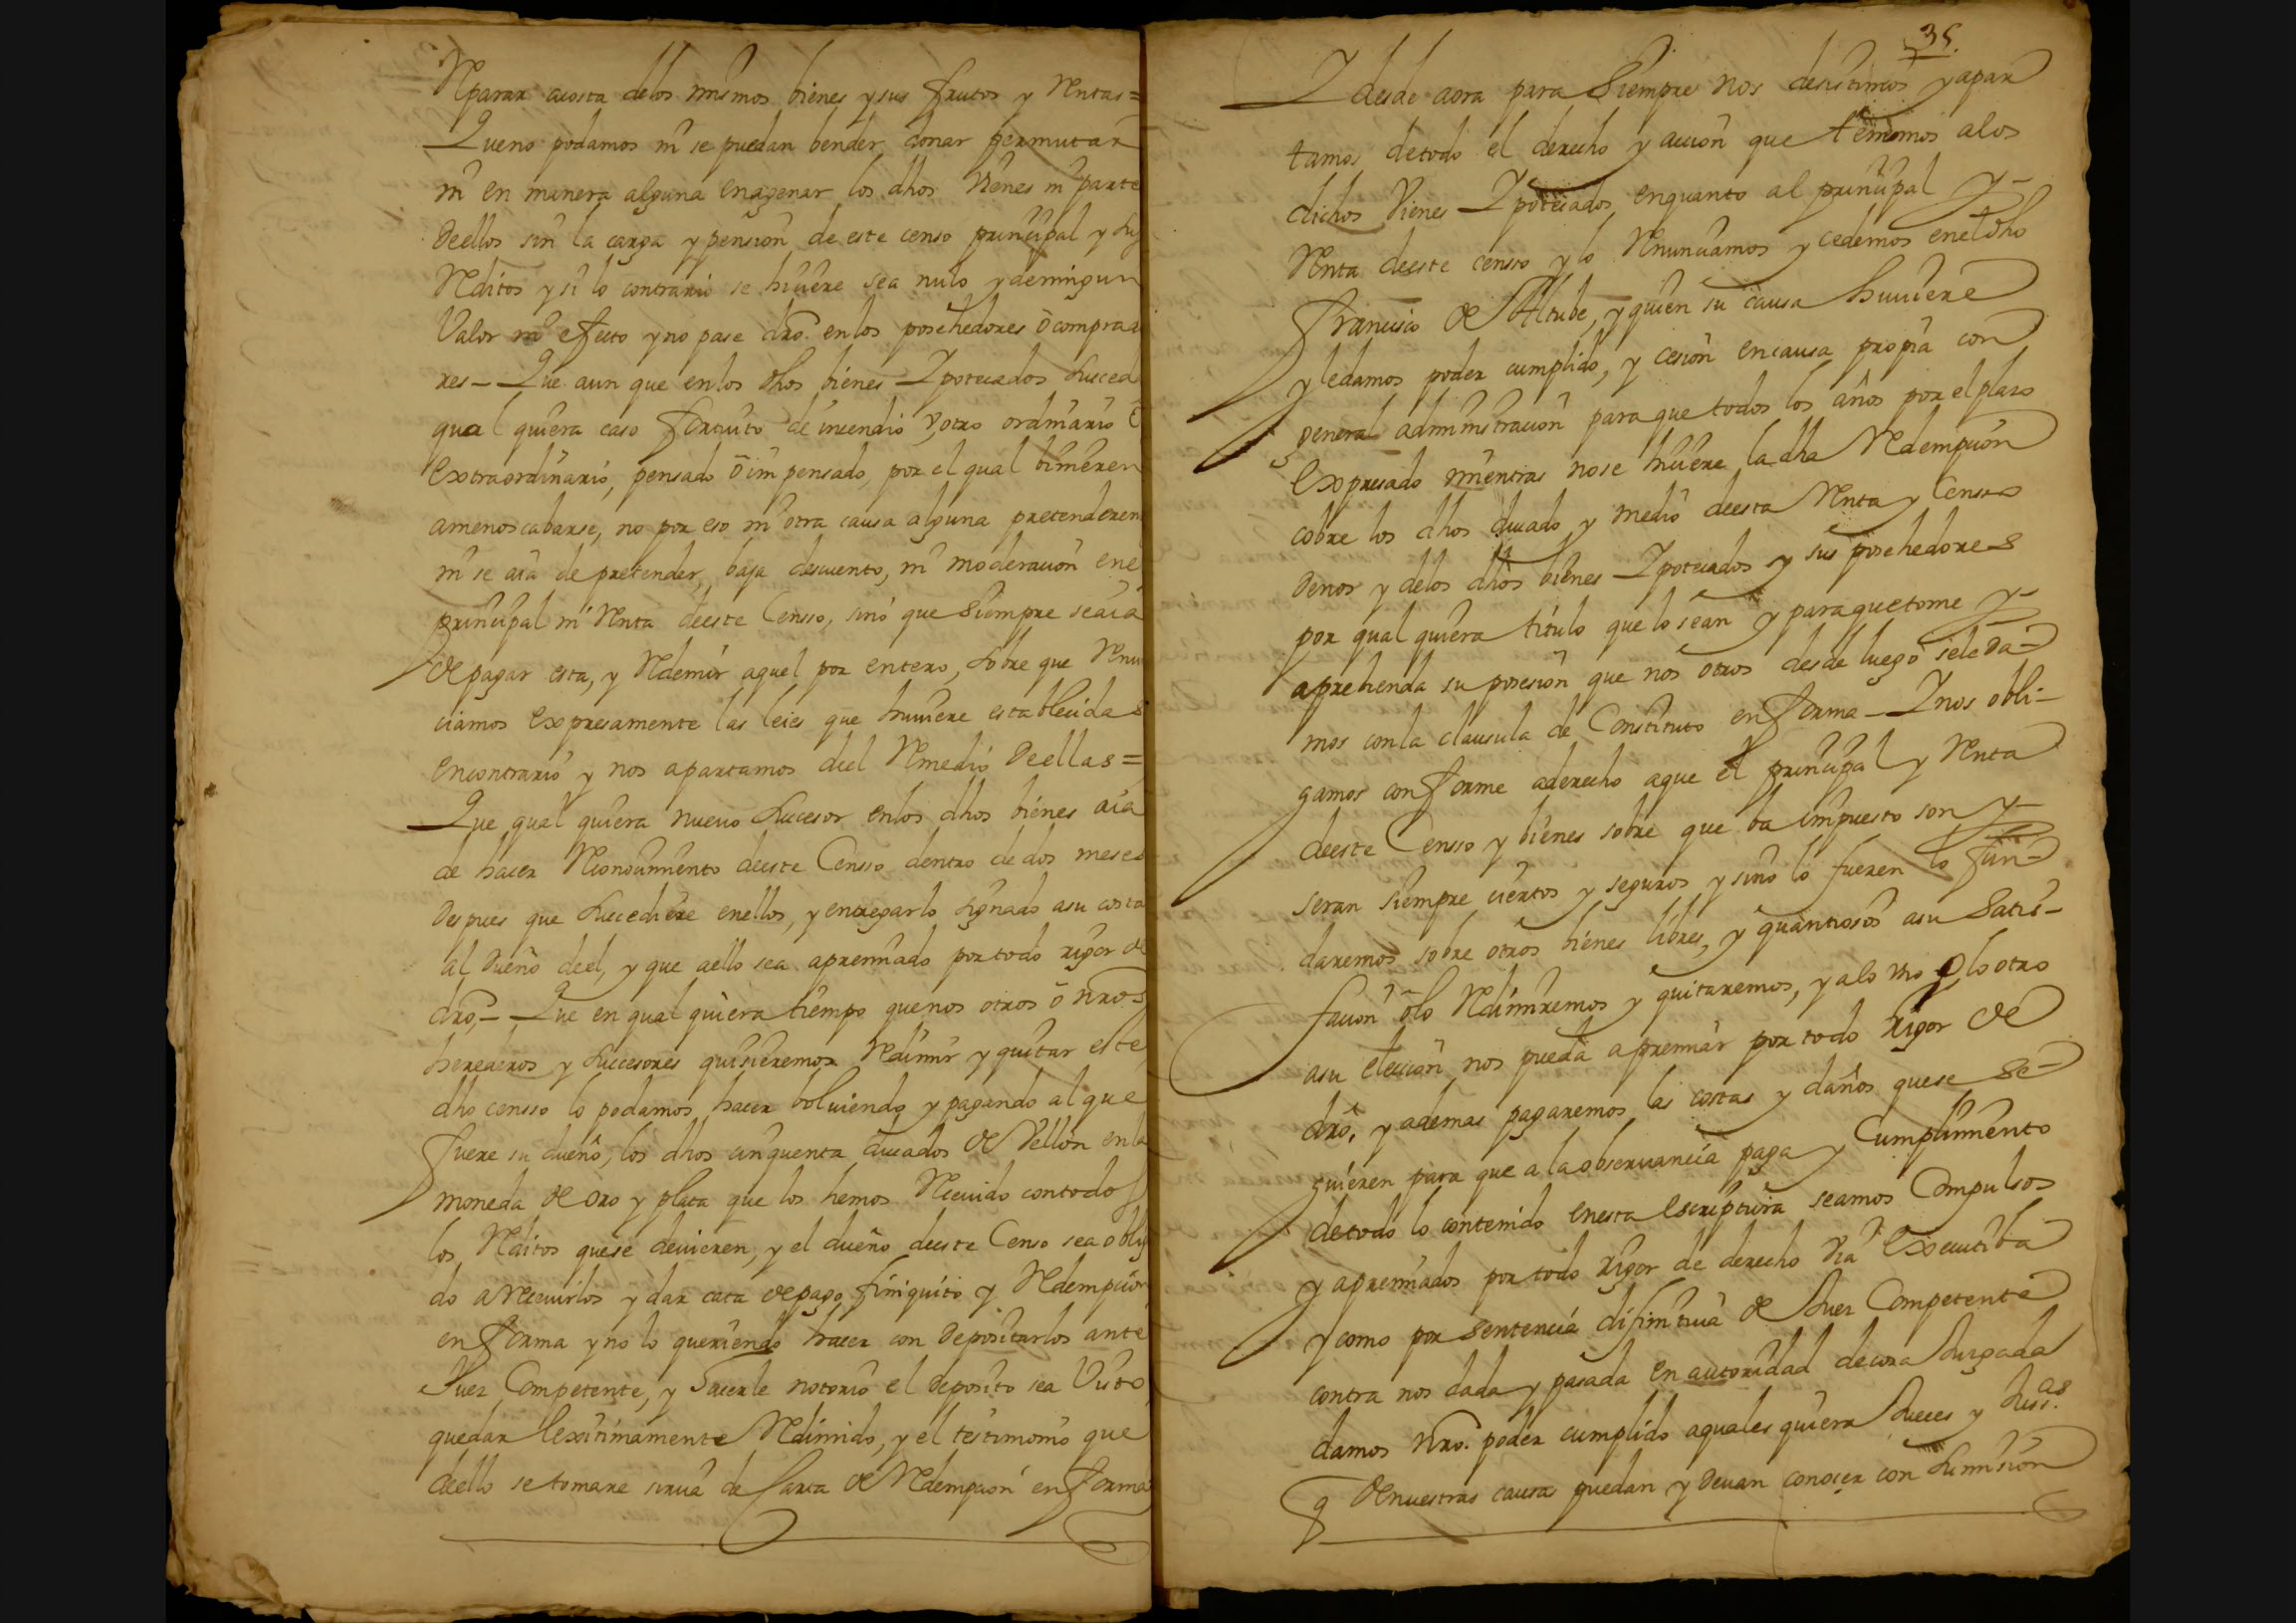 Reparar acosta delos mismos bienes y sus frutos y Rentas=
Que no podamos ni se puedan bender donar permutar
ni en manera alguna enagenar los dhos Vienes ni parte
Deellos sin la carga y pension de este censo principal y sus
Reditos y si lo contrario se hiciere sea nulo y deningun
Valor ni efecto y no pase dro. enlos posehedores ó comprado
res_ Que aun que enlos dhos bienes Ypotecados suceda
qual quiera caso fortuito de incendio, y otro ordinario ó
extraordinario, pensado ó im pensado, por el qual binieren
amenoscabarse, no por eso ni otra causa alguna pretenderen
ni se aia de pretender, baja descuento, ni moderacion enel
principal ni Renta deeste Censso, sino que siempre seaia
de pagar esta, y Redemir aquel por entero, sobre que Renun
ciamos expresamente las leies que huviere establecidas
encontrario y nos apartamos del Remedio Deellas=
Que qual quiera nuevo sucesor enlos dhos bienes aia
de hacer Reconocimiento deeste Censso dentro de dos meses
Despues que sucediere enellos, y entregarlo signado asu costa
al Dueño deel, y que aello sea apremiado por todo rigor de
dro_ Que en qual quiera tiempo que nos otros ó nros
herederos y sucesores quisieremos Redimir y quitar este
dho censso lo podamos hacer bolviendo y pagando al que
fuere su dueño, los dhos cinquenta ducados de Vellon enla
moneda de oro y plata que los hemos Recivido con todos
los Reditos que se devieren, y el dueño deeste Censo sea obliga
do aRecivirlos y dar cata de pago finiquito y Redempcion
en forma y no lo queriendo hacer con Depositarlos ante
Juez Competente, y hacerle notorio el deposito sea Visto
quedar lexitimamente Redimido, y el testimonio que
deello se tomare sirva de Carta de Redempcion en forma
35.
Y desde aora para siempre nos desistimos y apar
tamos detodo el derecho y accion que tenemos alos
dichos Vienes Ypotecados enquanto al principal y
Renta deeste censso y lo Renunciamos y cedemos enel dho
Francisco de Altube, y quien su causa huviere
y ledamos poder cumplido, y cesion encausa propia con
general administracion para que todos los años por el plazo
expresado mientras nose hiciere la dha Redempcion
cobre los dhos ducado y medio deesta Renta y Censso
denos y delos dhos bienes Ypotecados y sus posehedores
por qual quiera titulo que lo sean y para que tome y
aprehenda su posesion que nos otros desde luego sele da-
mos con la clausula de Constituto en forma_ Y nos obli-
gamos conforme aderecho aque el principal y Renta
deeste Censso y bienes sobre que ba impuesto son y
seran siempre ciertos y seguros y sino lo fueren lo fun-
daremos sobre otros bienes libres, y quantiosos asu satis-
facion ó lo Redimiremos y quitaremos, y alo uno y lo otro
asu eleccion nos pueda apremiar por todo rigor de
dro, y ademas pagaremos las costas y daños que se se-
guieren para que a la observancia paga y Cumplimiento
detodo lo contenido enesta escriptura seamos Compulsos
y apremiados por todo rigor de derecho Via executiba
y como por sentencia difinitiva de Juez Competente
contra nos dada y pasada en autoridad de cosa Juzgada
damos nro. poder cumplido aquales quiera Jueces y Jus.as
q Denuestras causas puedan y devan conocer con sumision